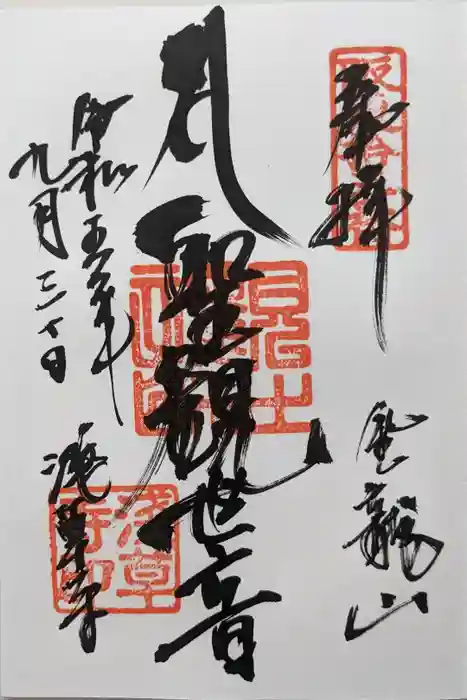 奉拝
金龍山
聖観世音
令和五年
九月三十日
浅草寺
浅草
寺印